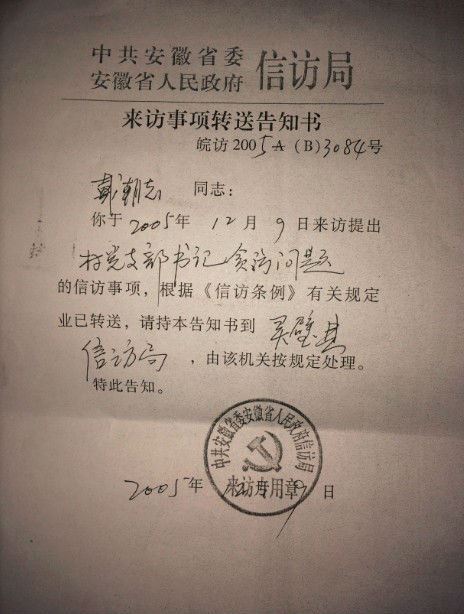 中共安徽省委
安徽省人民政府 信访局
来访事项转送告知书
皖访 2005A (B) 3084号
戴朝志 同志：
你于 2005年 12月 9日来访提出
村党支部书记贪污问题
的信访事项，根据《信访条例》有关规定
业已转送，请持本告知书到 灵璧县
信访局 ，由该机关按规定处理。
特此告知。
中共安徽省委安徽省人民政府信访局
来访专用章
2005年 月 9日